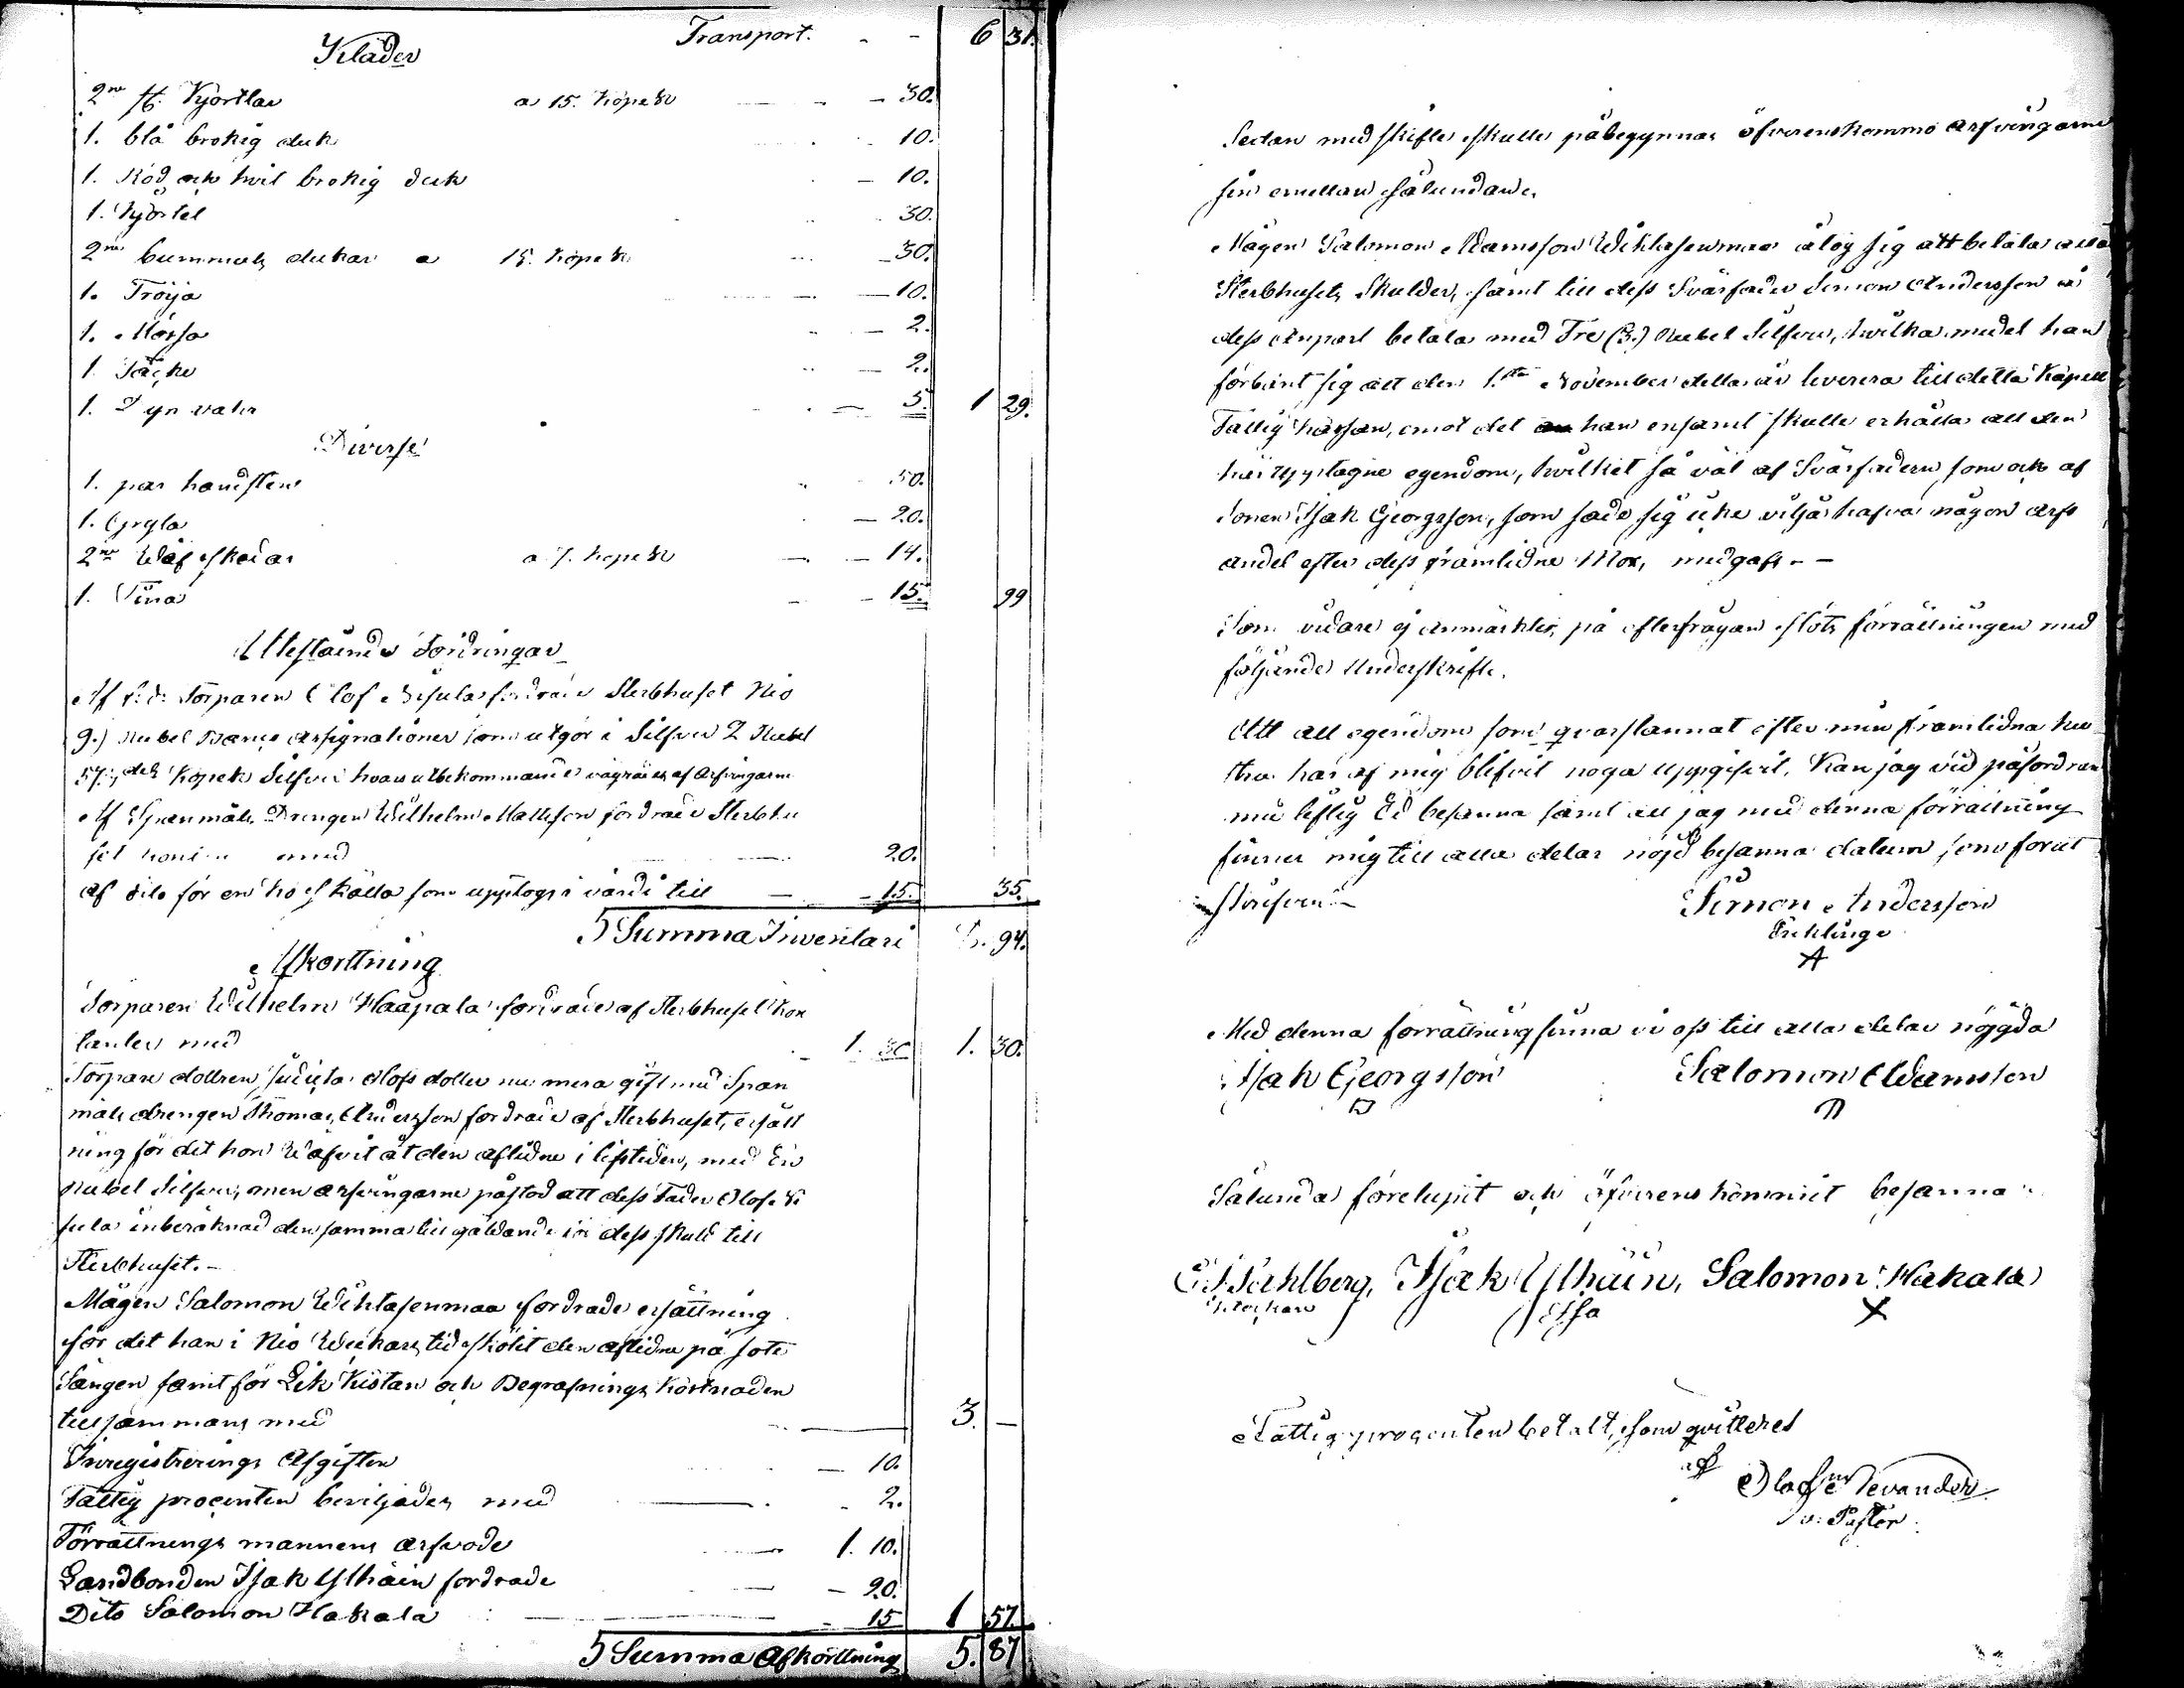 Transport. - - 6 31.
Kläder
2ne st. Kjortlar a 15. kopek - - 30.
1. blå brokig duk - 10.
1. Röd och hvit brokig duk - 10.
1. Kjortel - 30.
2ne bummuls dukar a 15. kopek - 30.
1. Tröija - 10.
1. Mössa - 2.
1. Täcke - 2.
1. Dynvahr - 5. 1 29.
Diverse
1. par handsten - 50.
1. Gryta - 20.
2ne Wäfskedar a 7. kopek - 14.
1. Tina - 15. 99
Utestående Fordringar
Af f: d: Torparen Olof fordrade Sterbhuset Nio
9.) Rubel Banco assignationer som utgör i Silfver 2 Rubel
57 kopek Silfver hvars utbekommande af Arfvingarne
Af Spanmåls Drengen Wilhelm Mattsson fordrade Sterbhu
set med 20.
af dito för en ho som upptogs i värde till - 15. 35.
Summa Inventarii 94.
Afkorttning
Torparen Wilhelm Haapala fordrade af Sterbhuset kon
tanter med 1. 30 1. 30.
Torpare dottren Olofs dotter nu mera gift med Span
måls drengen Thomas Andersson fordrade af Sterbhuset, ersätt
ning för det hon Wäfvit åt den aflidne i lifstiden, med En
Rubel Silfver, men arfvingarne påstod att dess Fader Olof
inberäknad densamma till gäldande i dess skuld till
Sterbhuset. -
Mågen Salomon Wihtasenmaa fordrade ersättning
för det han i Nio Weckors tid skött den aflidne på sote
Sängen samt för Likkistan och Begrafnings kostnaden
tillsammans med 3. -
Inregistrerings Afgiften - 10.
Fattig procenten beviljades med - 2.
Förrättnings mannens arfvode 1. 10.
Landbonden Isak Ylhäin fordrade - 20.
Dito Salomon Hakala - 15 1 57.
Summa Afkorttning 5. 87
Sedan med skifte skulle påbegynnas öfverenskommo arfvingarne
sin emellan sålunda.
Mågen Salomon Adamsson Wihtasenmaa åtog sig att betala alla
Sterbhusets Skulder, samt till dess Svärfader Simon Andersson
dess anpart betala med Tre (3.) Rubel Silfver, hvilka medel han
förbant sig att den 1.sta November detta år leverera till detta Kapell
Fattig kassan, emot det han ensamt skulle erhålla all den
här upptagne egendom, hvilket så väl af Svärfadern som ock af
Sonen Isak Georgsson, som sade sig icke vilja hafva någon arfs
andel efter dess framlidne Mor, medgafs. -
Som vidare ej anmärktes, på efterfrågan slöts förrättningen med
följande Underskrifter.
Att all egendom som qvarstannat efter min framlidna hu
stru har af mig blifvit noga uppgifvit, Kan jag vid påfordran
med liflig Ed besanna samt att jag med denna förrättning
finner mig till alla delar nöjd besanna datum som förut
Simon Andersson
A
Med denna förrättning finna vi oss till alla delar nöjgda
Isak Georgsson Salomon Adamsson
Sålunda förelupit och öfverenskommit besanna
Sahlberg, Isak Ylhäin, Salomon Hakala
X
Fattig procenten betalt, som qvitteres
af
Olof Levander
v: Pastor.